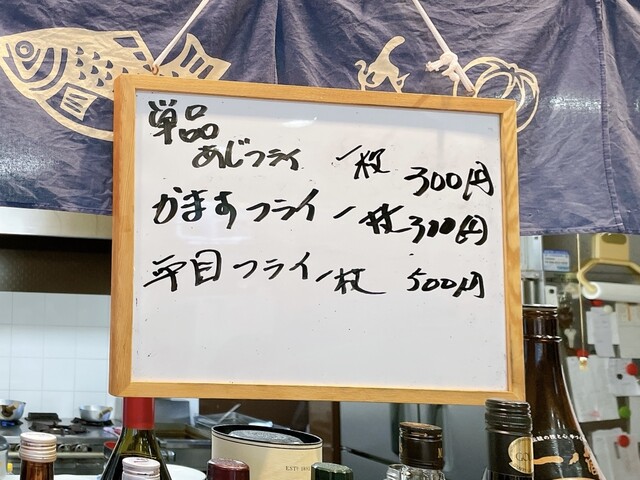 単品
あじフライ 一枚 300円
かますフライ 一枚 300円
平目フライ 一枚 500円